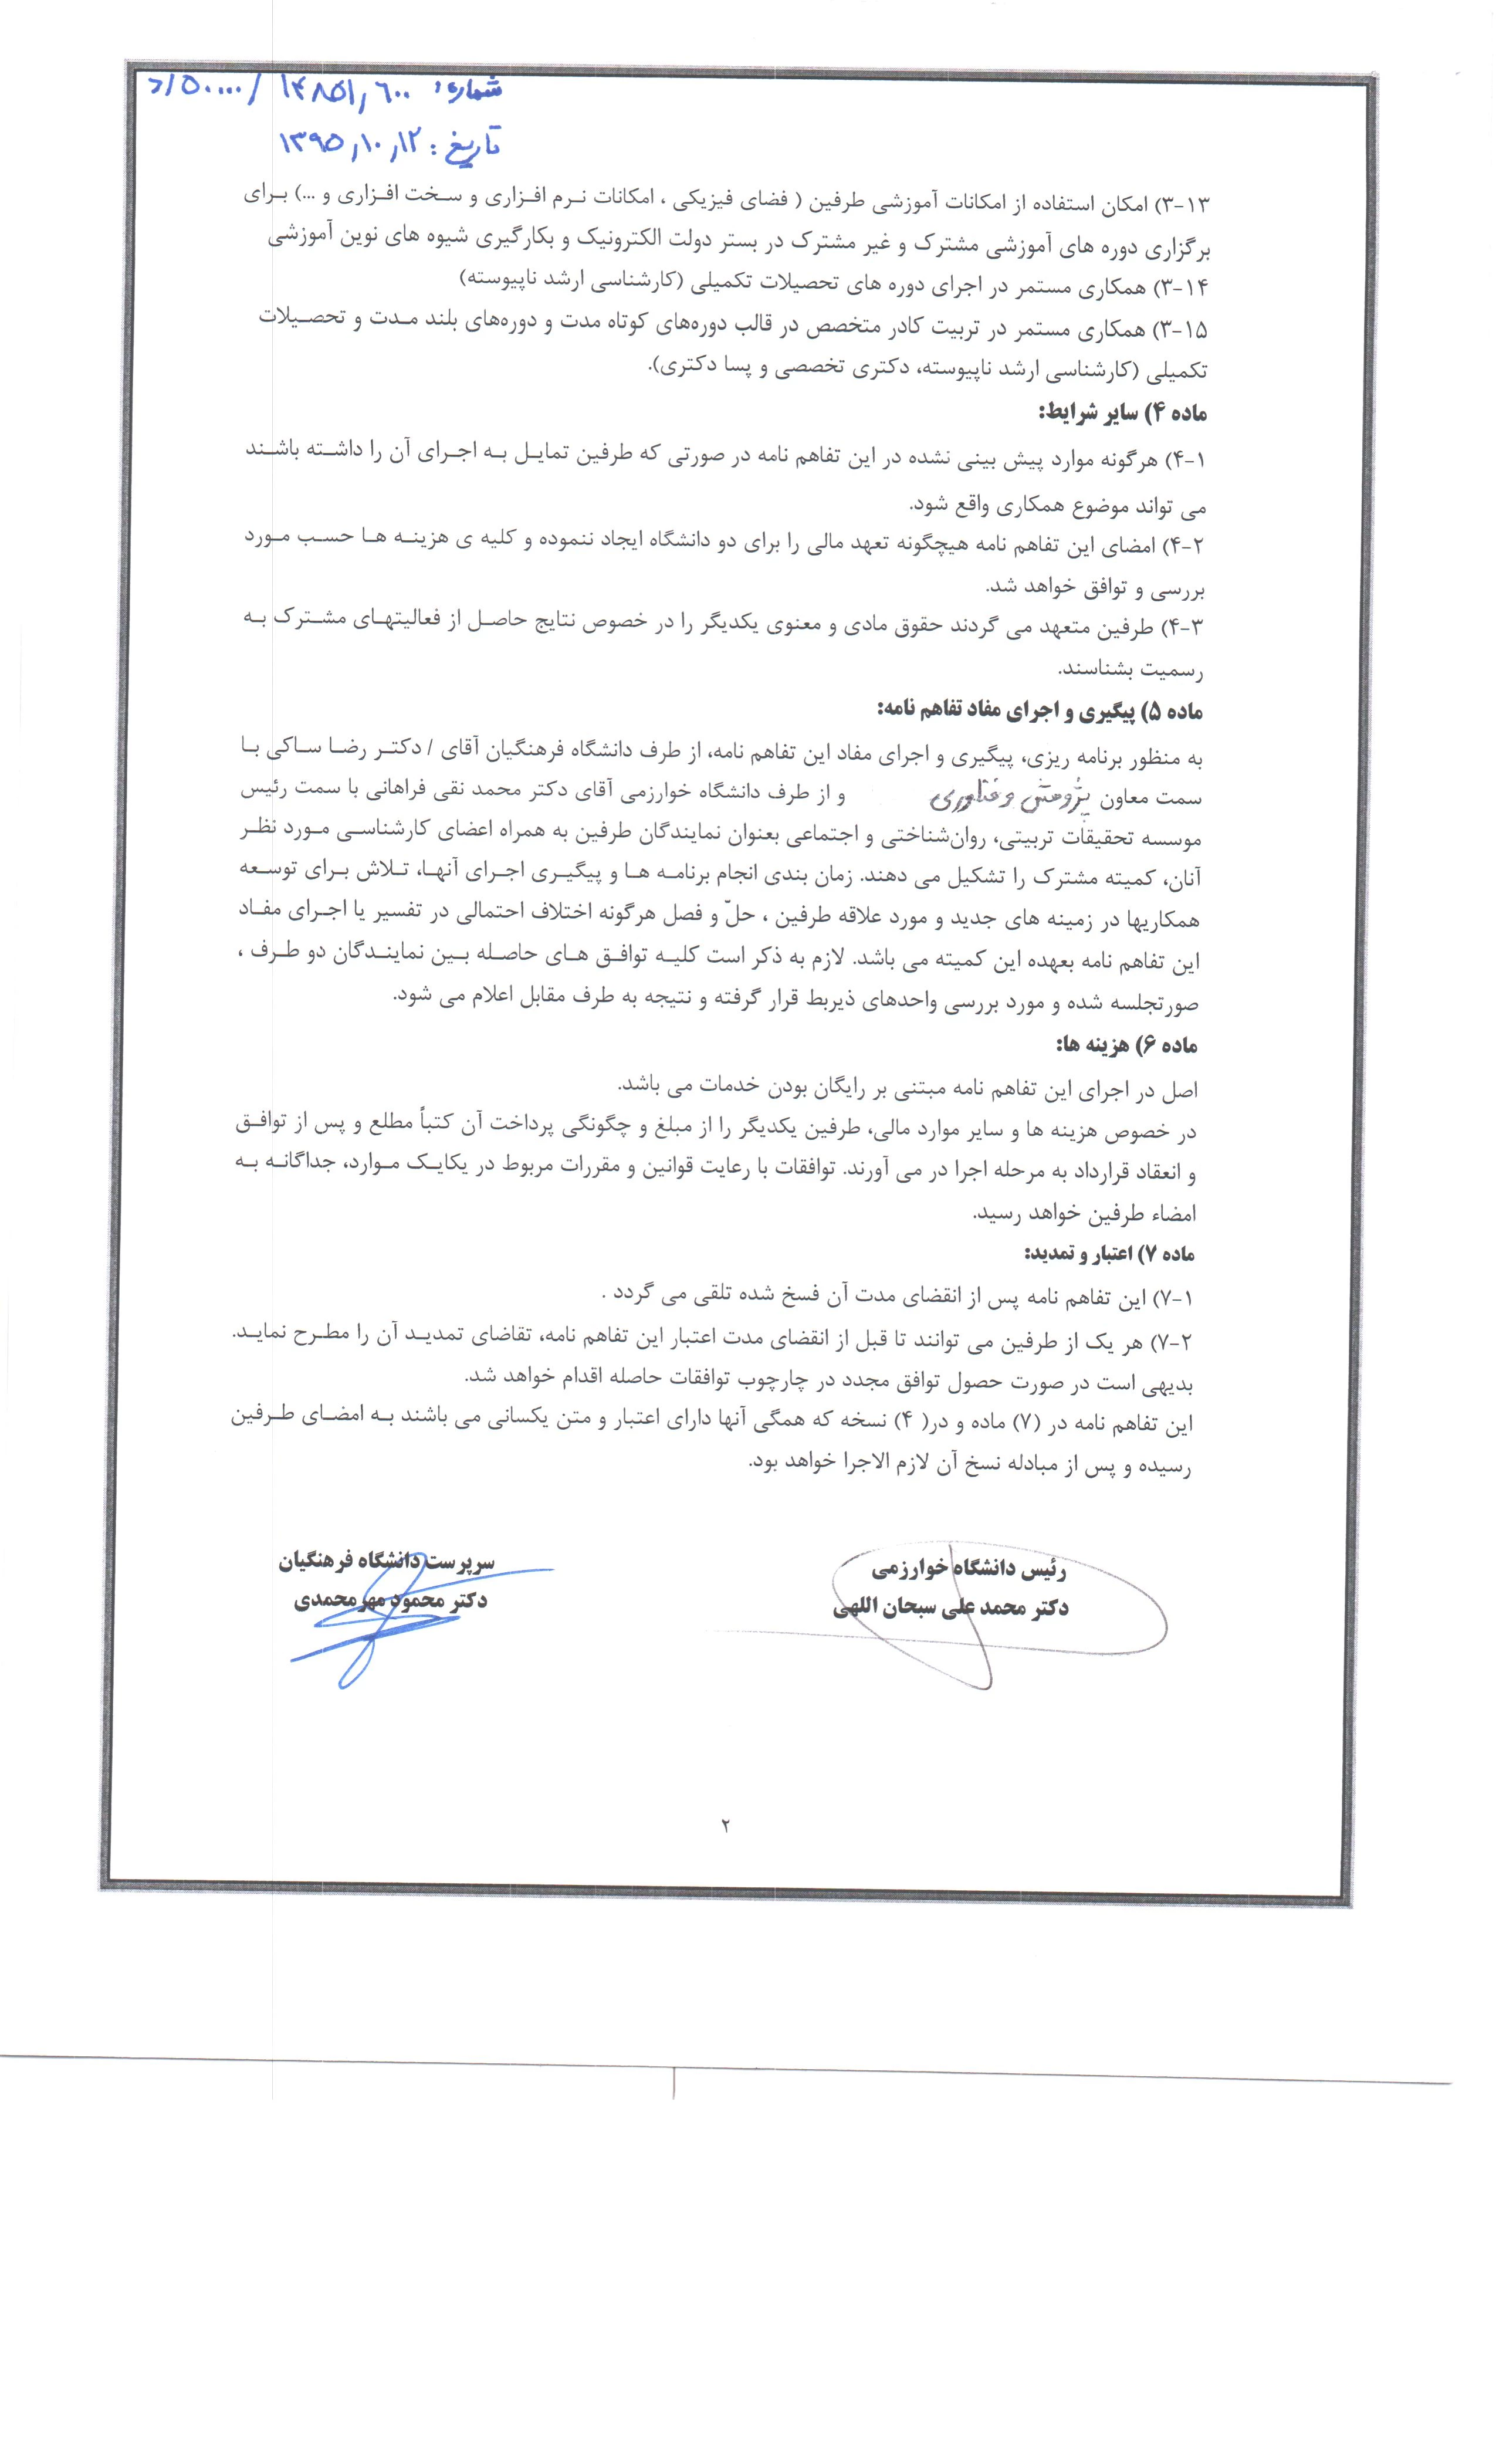 شماره: ۱۴۸۵۱٫۶۰۰ /۵۰۰۰۰/د
تاریخ: ۱۳۹۵٫۱۰٫۱۲
۳-۱۳) امکان استفاده از امکانات آموزشی طرفین ( فضای فیزیکی ، امکانات نرم افزاری و سخت افزاری و ...) برای
برگزاری دوره های آموزشی مشترک و غیر مشترک در بستر دولت الکترونیک و بکارگیری شیوه های نوین آموزشی
۳-۱۴) همکاری مستمر در اجرای دوره های تحصیلات تکمیلی (کارشناسی ارشد ناپیوسته)
۳-۱۵) همکاری مستمر در تربیت کادر متخصص در قالب دوره‌های کوتاه مدت و دوره‌های بلند مدت و تحصیلات
تکمیلی (کارشناسی ارشد ناپیوسته، دکتری تخصصی و پسا دکتری).
ماده ۴) سایر شرایط:
۴-۱) هرگونه موارد پیش بینی نشده در این تفاهم نامه در صورتی که طرفین تمایل به اجرای آن را داشته باشند
می تواند موضوع همکاری واقع شود.
۴-۲) امضای این تفاهم نامه هیچگونه تعهد مالی را برای دو دانشگاه ایجاد ننموده و کلیه ی هزینه ها حسب مورد
بررسی و توافق خواهد شد.
۴-۳) طرفین متعهد می گردند حقوق مادی و معنوی یکدیگر را در خصوص نتایج حاصل از فعالیتهای مشترک به
رسمیت بشناسند.
ماده ۵) پیگیری و اجرای مفاد تفاهم نامه:
به منظور برنامه ریزی، پیگیری و اجرای مفاد این تفاهم نامه، از طرف دانشگاه فرهنگیان آقای / دکتر رضا ساکی با
سمت معاون پژوهش و فناوری و از طرف دانشگاه خوارزمی آقای دکتر محمد نقی فراهانی با سمت رئیس
موسسه تحقیقات تربیتی، روان‌شناختی و اجتماعی بعنوان نمایندگان طرفین به همراه اعضای کارشناسی مورد نظر
آنان، کمیته مشترک را تشکیل می دهند. زمان بندی انجام برنامه ها و پیگیری اجرای آنها، تلاش برای توسعه
همکاریها در زمینه های جدید و مورد علاقه طرفین ، حلّ و فصل هرگونه اختلاف احتمالی در تفسیر یا اجرای مفاد
این تفاهم نامه بعهده این کمیته می باشد. لازم به ذکر است کلیه توافق های حاصله بین نمایندگان دو طرف ،
صورتجلسه شده و مورد بررسی واحدهای ذیربط قرار گرفته و نتیجه به طرف مقابل اعلام می شود.
ماده ۶) هزینه ها:
اصل در اجرای این تفاهم نامه مبتنی بر رایگان بودن خدمات می باشد.
در خصوص هزینه ها و سایر موارد مالی، طرفین یکدیگر را از مبلغ و چگونگی پرداخت آن کتباً مطلع و پس از توافق
و انعقاد قرارداد به مرحله اجرا در می آورند. توافقات با رعایت قوانین و مقررات مربوط در یکایک موارد، جداگانه به
امضاء طرفین خواهد رسید.
ماده ۷) اعتبار و تمدید:
۷-۱) این تفاهم نامه پس از انقضای مدت آن فسخ شده تلقی می گردد .
۷-۲) هر یک از طرفین می توانند تا قبل از انقضای مدت اعتبار این تفاهم نامه، تقاضای تمدید آن را مطرح نماید.
بدیهی است در صورت حصول توافق مجدد در چارچوب توافقات حاصله اقدام خواهد شد.
این تفاهم نامه در (۷) ماده و در( ۴) نسخه که همگی آنها دارای اعتبار و متن یکسانی می باشند به امضای طرفین
رسیده و پس از مبادله نسخ آن لازم الاجرا خواهد بود.
رئیس دانشگاه خوارزمی
دکتر محمد علی سبحان اللهی
سرپرست دانشگاه فرهنگیان
دکتر محمود مهرمحمدی
۲